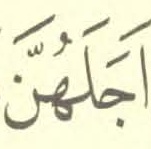 اَجَلَهُنَّ